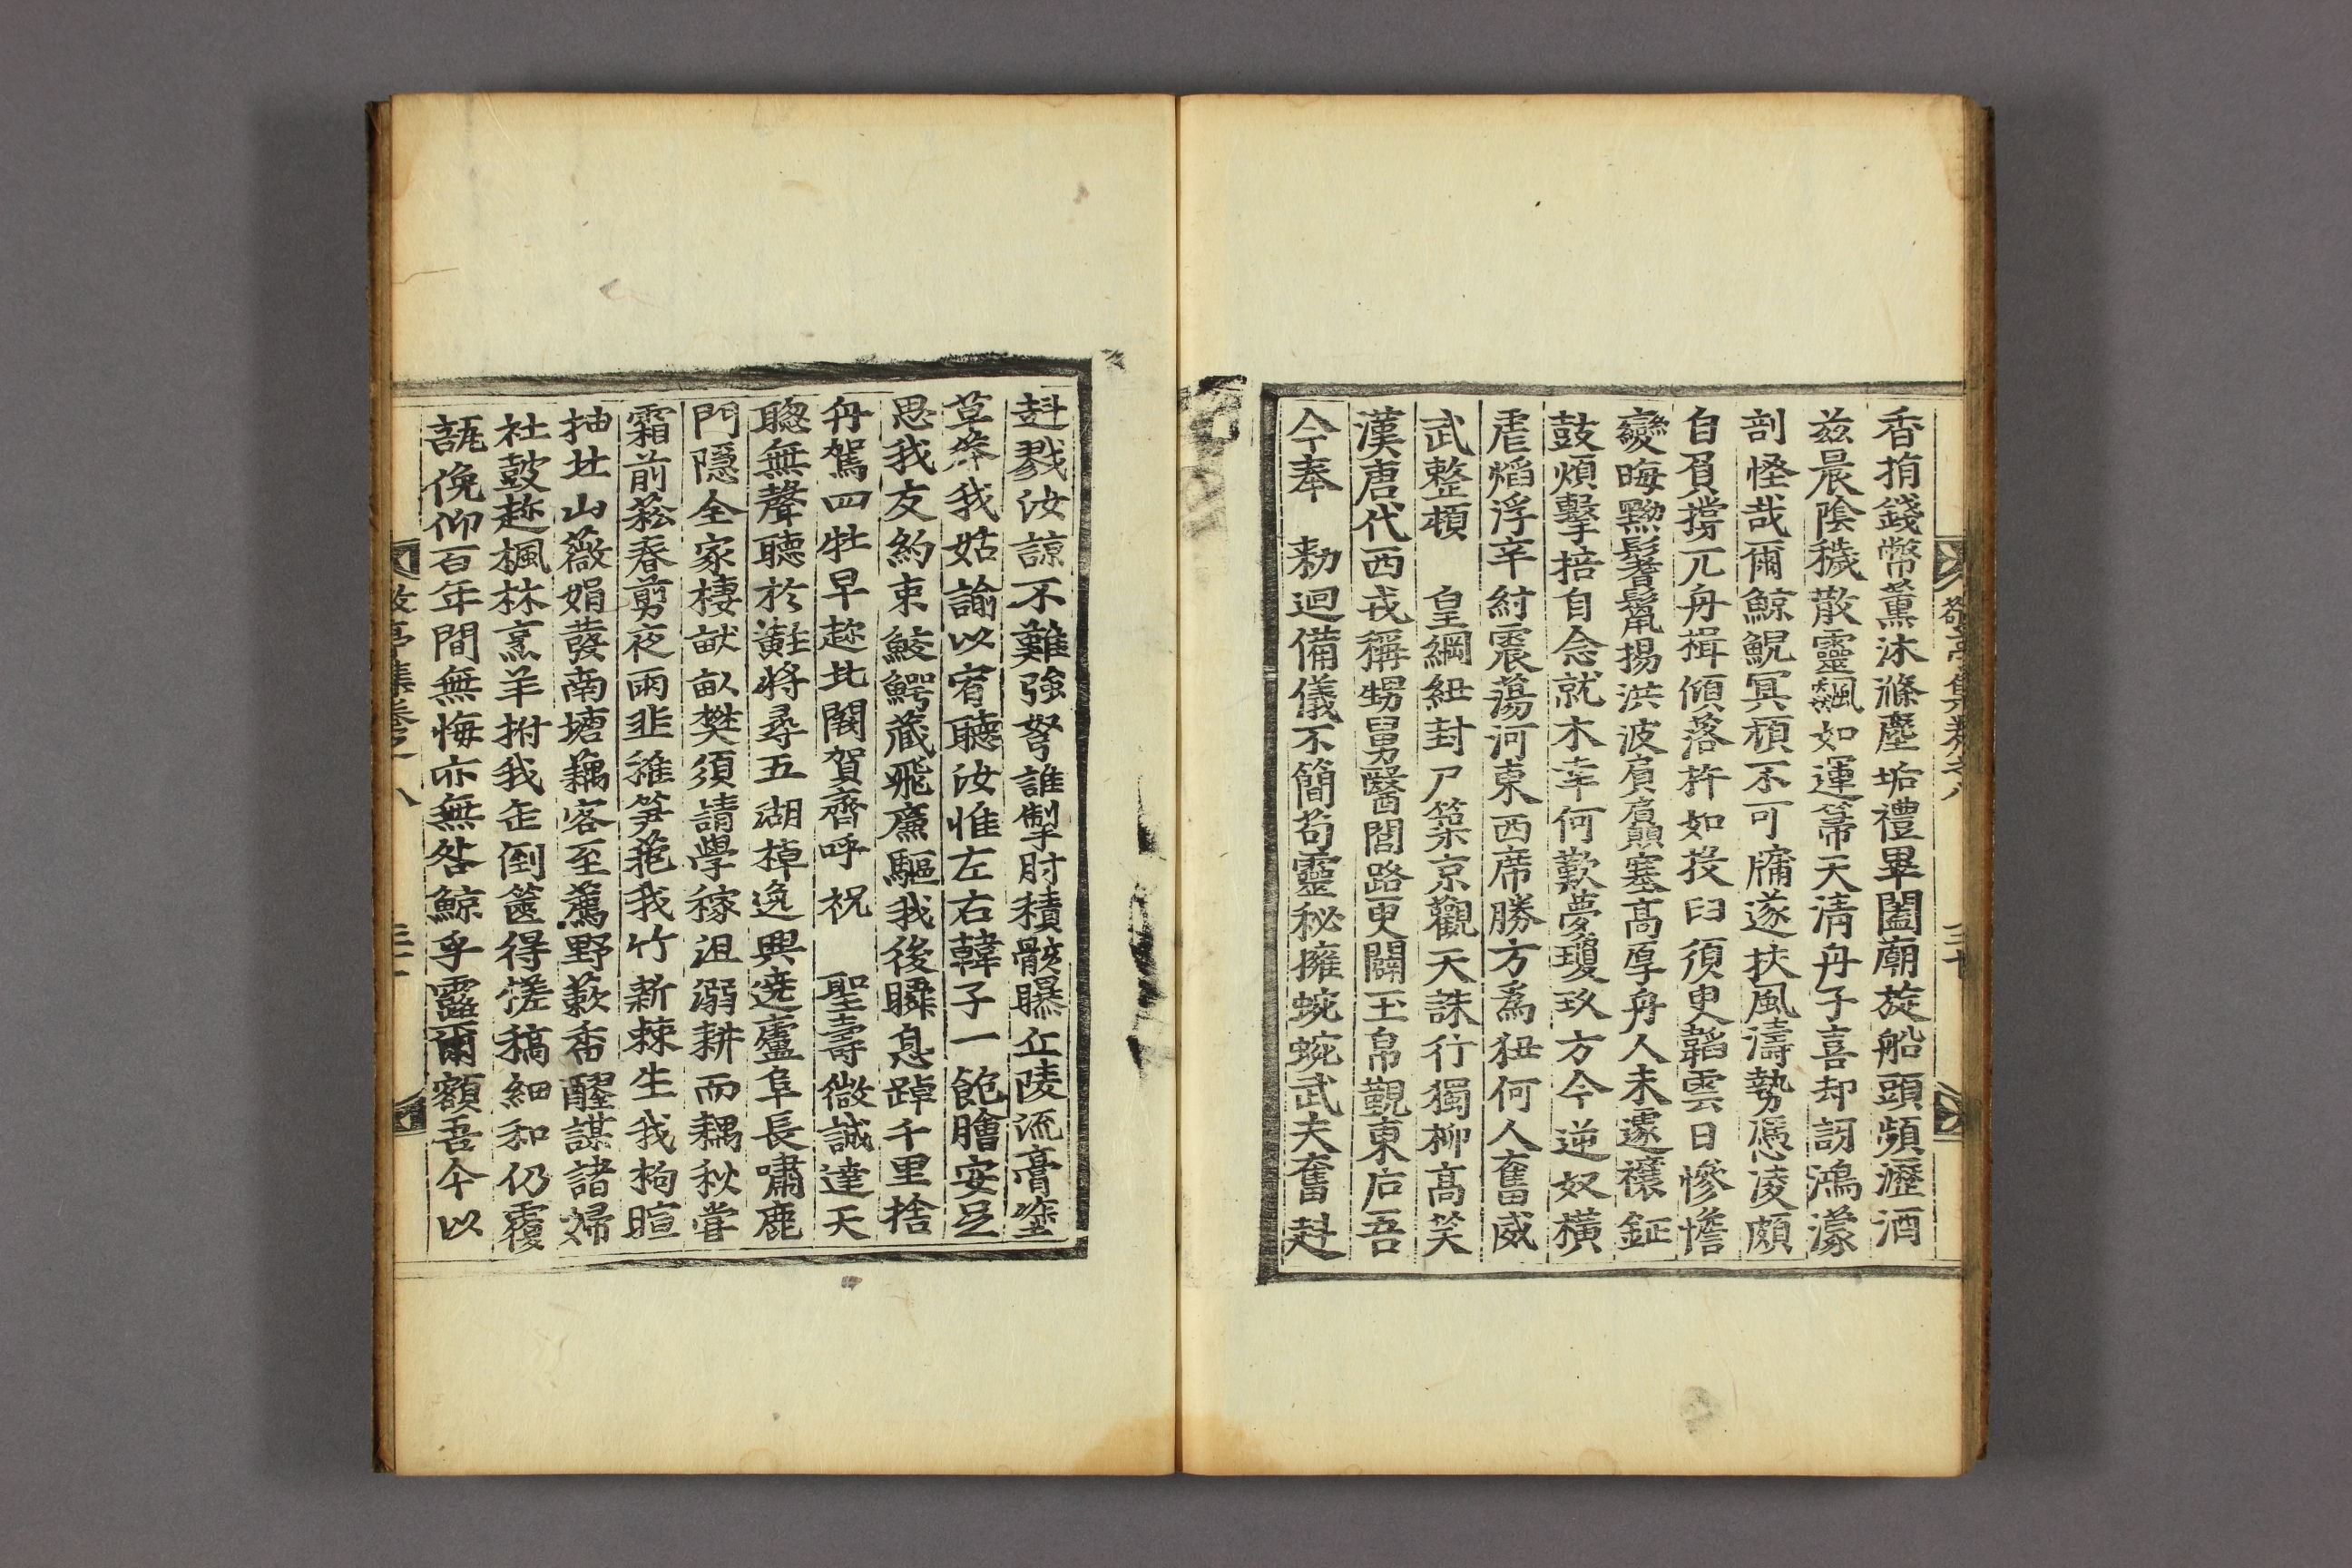 香捎錢幣薰沐滌塵垢禮畢闔廟旋船頭頻瀝酒
兹晨陰穢散靈飇如運箒天清舟子喜却訝鴻濛
剖怪哉爾鯨鯢冥頑不可牖遂挾風濤勢慿凌頗
自負搒兀舟楫傾落杵如投臼須臾韜雲日慘憺
變晦黝髻鬣揚洪波贔屭塞高厚舟人未遽禳鉦
鼓煩擊掊自念就木幸何歎夢瓊玖方今逆奴橫
虐熖浮辛紂震蕩河東西席勝方爲狃何人奮威
武整頓 皇綱紐封尸築京觀天誅行獨柳高笑
漢唐代西戎稱甥舅醫閭路更闢玉帛覲東后吾
今奉 勑迴備儀不簡苟靈秘擁蜿蜿武夫奮赳
赳戮汝諒不難強弩誰掣肘積骸曝丘陵流膏塗
草莽我姑諭以宥聽汝惟左右韓子一飽膾安足
思我友約束鮫鰐藏飛廉驅我後瞬息踔千里捨
舟駕四牡早趂北闕賀齊呼祝 聖壽微誠達天
聰無聲聽於黈將尋五湖棹逸興遶廬阜長嘯鹿
門隱全家棲畎畝樊須請學稼沮溺耕而耦秋嘗
霜前菘春剪夜雨韭籜笋苞我竹新棘生我枸暄
抽北山薇娟發南塘藕客至薦野蔌香醪謀諸婦
社鼓趂楓林烹羊拊我缶倒篋得慥稿細和仍覆
瓿俛仰百年間無悔亦無咎鯨乎露爾額吾今以
敬亭集卷之八
敬亭集卷之八